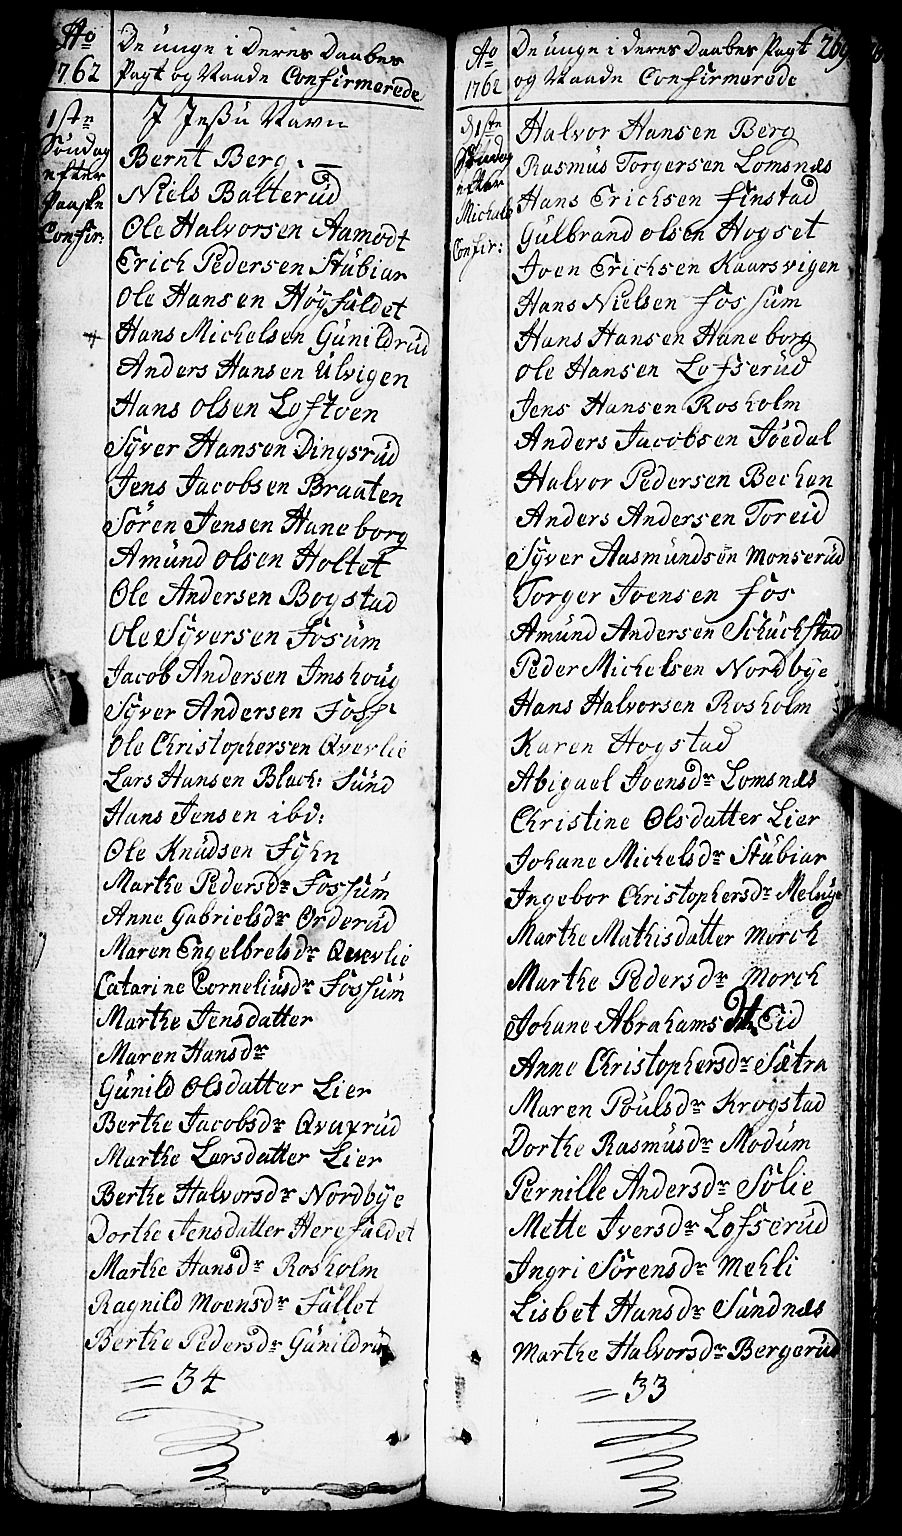 Ao
1762
De unge i Deres Daabes
Pagt og Naade Confirmerede
1ste
Søndag
efter
Paaske
Confir:
J Jesu Navn
Bernt Berg.
Niels Balterud
Ole Halvorsen Aamodt
Erich Pedersen Stubiar
Ole Hansen Høyfaldet
Hans Michelsen Gunildrud
Anders Hansen Ulvigen
Hans Olsen Loftven
Syver Hansen Dingsrud
Jens Jacobsen Braaten
Sören Jensen Haneborg
Amund Olsen Holtet
Ole Andersen Bogstad
Ole Syversen Fosum
Jacob Andersen Imshoug
Syver Andersen Foss
Ole Christophersen Qverlie
Lars Hansen Blach: Sund
Hans Jensen ibd:
Ole Knudsen Fyhn
Marthe Pedersdr Fossum
Anne Gabrielsdr Orderud
Maren Engelbretsdr Qverlie
Catarine Corneliusdr Fossum
Marthe Jensdatter
Maren Hansdr
Gunild Olsdatter Lier
Berthe Jacobsdr Qvaxrud
Marthe Larsdatter Lier
Berthe Halvorsdr Nordbye
Dorthe Jensdatter Herefaldet
Marthe Hansdr Rosholm
Ragnild Moensdr Fallet
Berthe Pedersdr Gunildrud
= 34
Ao
1762
De unge i deres Daabes Pagt 269
og Naade Confirmerede
d 1ste
Søndag
efter
Michels
Confir:
Halvor Hansen Berg
Rasmus Torgersen Lomsnæs
Hans Erichsen Finstad
Gulbrand olsen Hogset
Joen Erichsen Kaarsvigen
Hans Nielsen Fossum
Hans Hansen Haneborg
Ole Hansen Lofserud
Jens Hansen Rosholm
Anders Jacobsen Joedal
Halvor Pedersen Bechen
Anders Andersen Toreid
Syver Aasmundsen Monserud
Torger Joensen Fos
Amund Andersen Schuchstad
Peder Michelsen Nordbye
Hans Halvorsen Rosholm
Karen Hogstad
Abigael Joensdr Lomsnæs
Christine Olsdatter Lier
Johane Michelsdr Stubiar
Ingebor Christophersdr
Marthe Mathisdatter Morch
Marthe Pedersdr Morch
Johane Abrahams Dt. Eid
Anne Christophersdr Sætra
Maren Poulsdr Krogstad
Dorthe Rasmusdr Modum
Pernille Andersdr Solie
Mette Iversdr Lofserud
Ingri Sörensdr Mehli
Lisbet Hansdr Sundnæs
Marthe Halvorsdr Bergerud
= 33